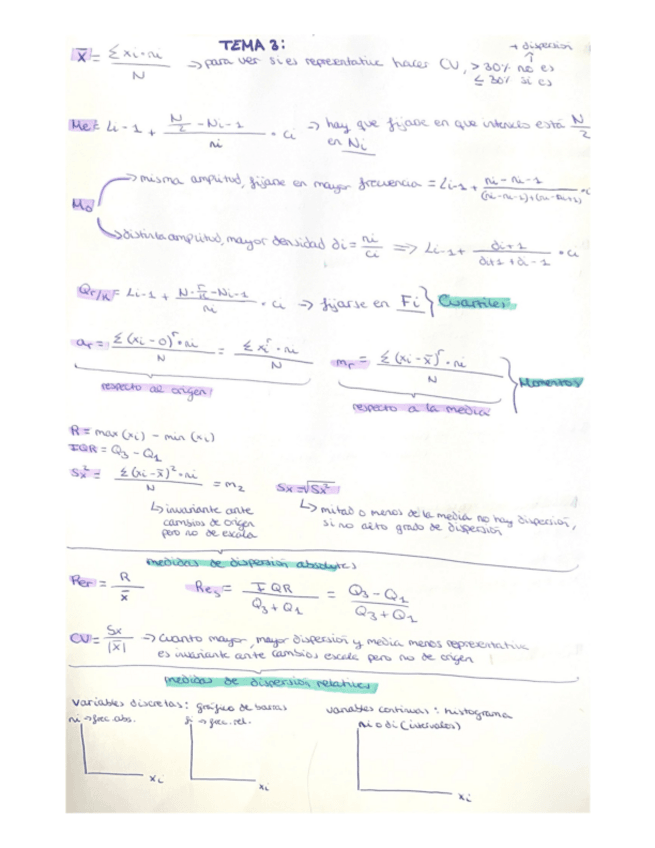 TEMA 3:
+ dispersion
x̄ = Σ xi · ni / N → para ver si es representativa hacer CU, > 30% no es
≤ 30% si es
Me = Li-1 + (N/2 - Ni-1) / ni · ci → hay que fijarse en que intervalo está N/2
en Ni
Mo
→ misma amplitud, fijarse en mayor frecuencia = Li-1 + (ni - ni-1) / ((ni-ni-1)+(ni-ni+1)) · c
→ distinta amplitud, mayor densidad di = ni/ci ⇒ Li-1 + di+1 / (di+1 + di-1) · ci
Qr/k = Li-1 + (N · r/k - Ni-1) / ni · ci → fijarse en Fi } Cuartiles
ar = Σ (xi - 0)^r · ni / N = Σ xi^r · ni / N
mr = Σ (xi - x̄)^r · ni / N } Momentos
respecto al origen
respecto a la media
R = max (xi) - min (xi)
IQR = Q3 - Q1
Sx² = Σ (xi - x̄)² · ni / N = m2
Sx = √Sx²
↳ invariante ante
cambios de origen
pero no de escala
↳ mitad o menos de la media no hay dispersión,
si no alto grado de dispersión
medidas de dispersión absolutas
Rer = R / x̄
Res = IQR / (Q3 + Q1) = (Q3 - Q1) / (Q3 + Q1)
CU = Sx / |x̄| → cuanto mayor, mayor dispersión y media menos representativa
es invariante ante cambios escala pero no de origen
medidas de dispersión relativas
variables discretas: gráfico de barras
variables continuas: histograma
ni → frec. abs.
fi → frec. rel.
ni o di (intervalos)
xi
xi
xi